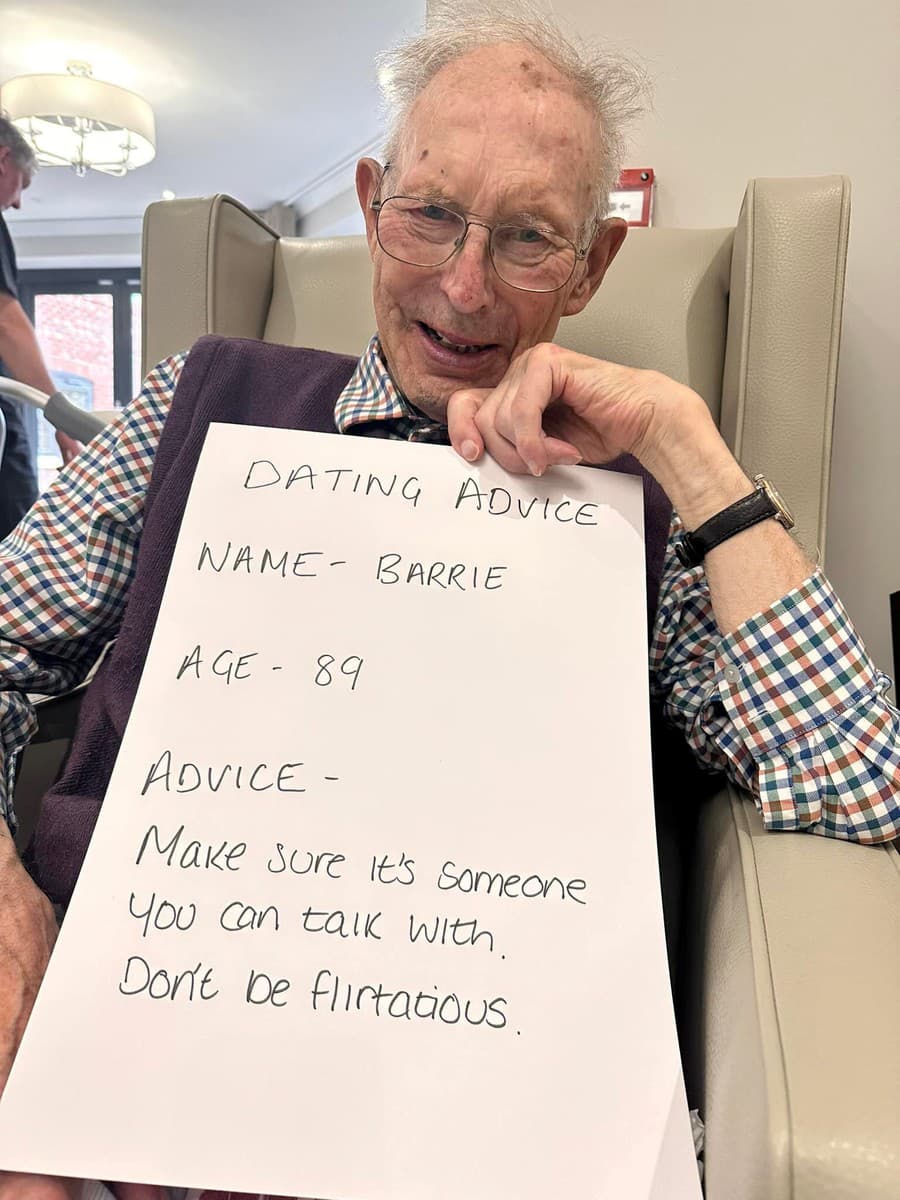 DATING ADVICE
NAME - BARRIE
AGE - 89
ADVICE -
Make sure it's someone
you can talk with.
Don't be flirtatious.